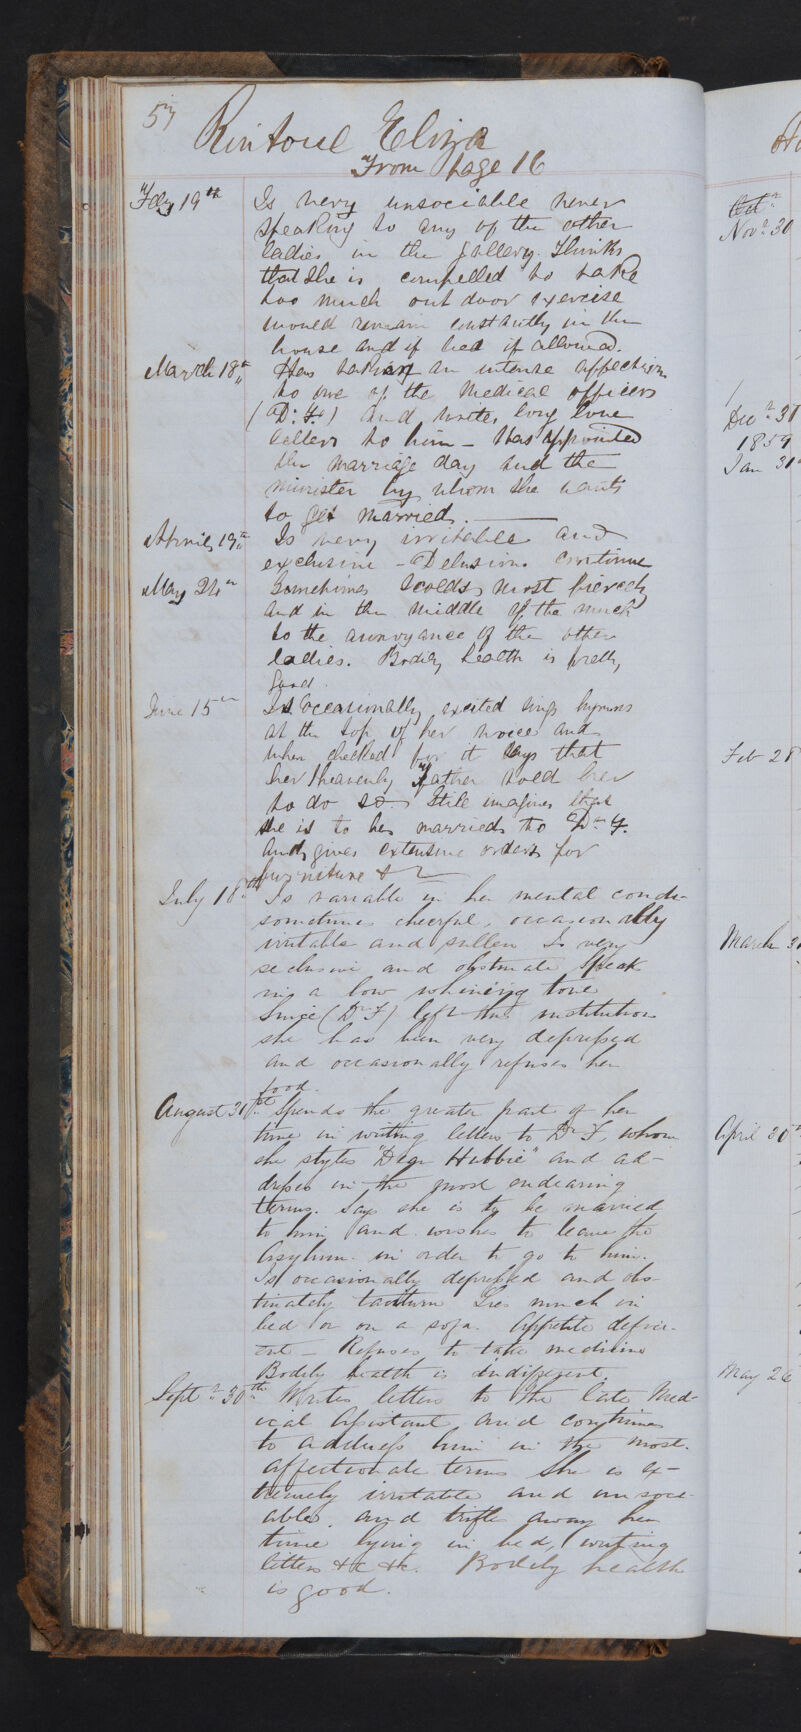 57
Rintoul Eliza
From page 16
Feby 19th Is very unsociable never
speaking to any of the other
ladies in the gallery. Thinks
that she is compelled to take
too much out door exercise
would remain constantly in the
house and if bed if allowed.
March 18th Has taken an intense affection
to one of the Medical officers
(Dr F.) and writes long love
letters to him - Has appointed
the marriage day and the
minister by whom she wants
to get married.
April 19th Is very irritable and
exclusive - Delusions continue
May 24th Sometimes scolds most fiercely
and in the middle of the
to the annoyance of the other
ladies. Bodily health is pretty
good.
June 15th Is occasionally excited sings hymns
at the top of her voice and
when checked for it says that
her heavenly Father told her
to do so. Still imagines that
she is to be married to Dr F.
and gives extensive orders for
furniture &c
July 18th Is variable in her mental condn
sometimes cheerful, occasionally
irritable and sullen Is very
seclusive and obstinate Speak
in a low whining tone
Since (Dr F) left the institution
she has been very depressed
and occasionally refuses her
food.
August 31st Spends the greater part of her
time in writing letters to Dr F, whom
she styles "Dear Hubbie" and ad-
dresses in the most endearing
terms. Says she is to be married
to him and wishes to leave the
Asylum in order to go to him.
Is occasionally depressed and obs-
tinately taciturn Lies much in
bed or on a sofa. Appetite defici-
ent - Refuses to take medicine
Bodily health is indifferent.
Septr 30th Writes letters to the late Med-
ical Assistant and continues
to address him in the most
affectionate terms She is ex-
tremely irritable and unsoci-
able, and trifles away her
time lying in bed, writing
letters &c &c. Bodily health
is good.
Octr
Novr 30
Decr 31
1859
Jan 31
Feb 28
March 31
April 30th
May 26